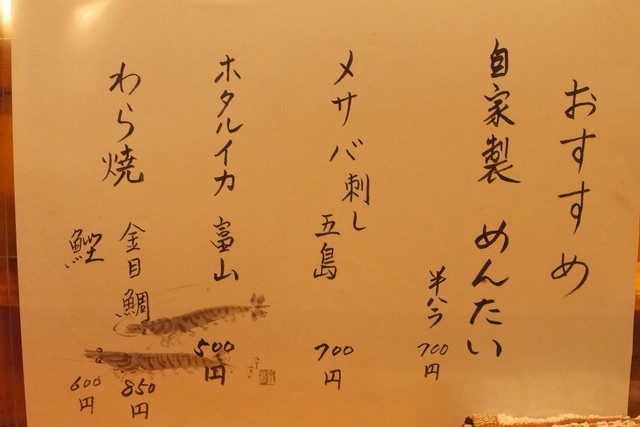 おすすめ
自家製 めんたい
半ハラ 700円
メサバ刺し 五島 700円
ホタルイカ 富山 500円
わら焼 金目鯛 850円
鰹 600円